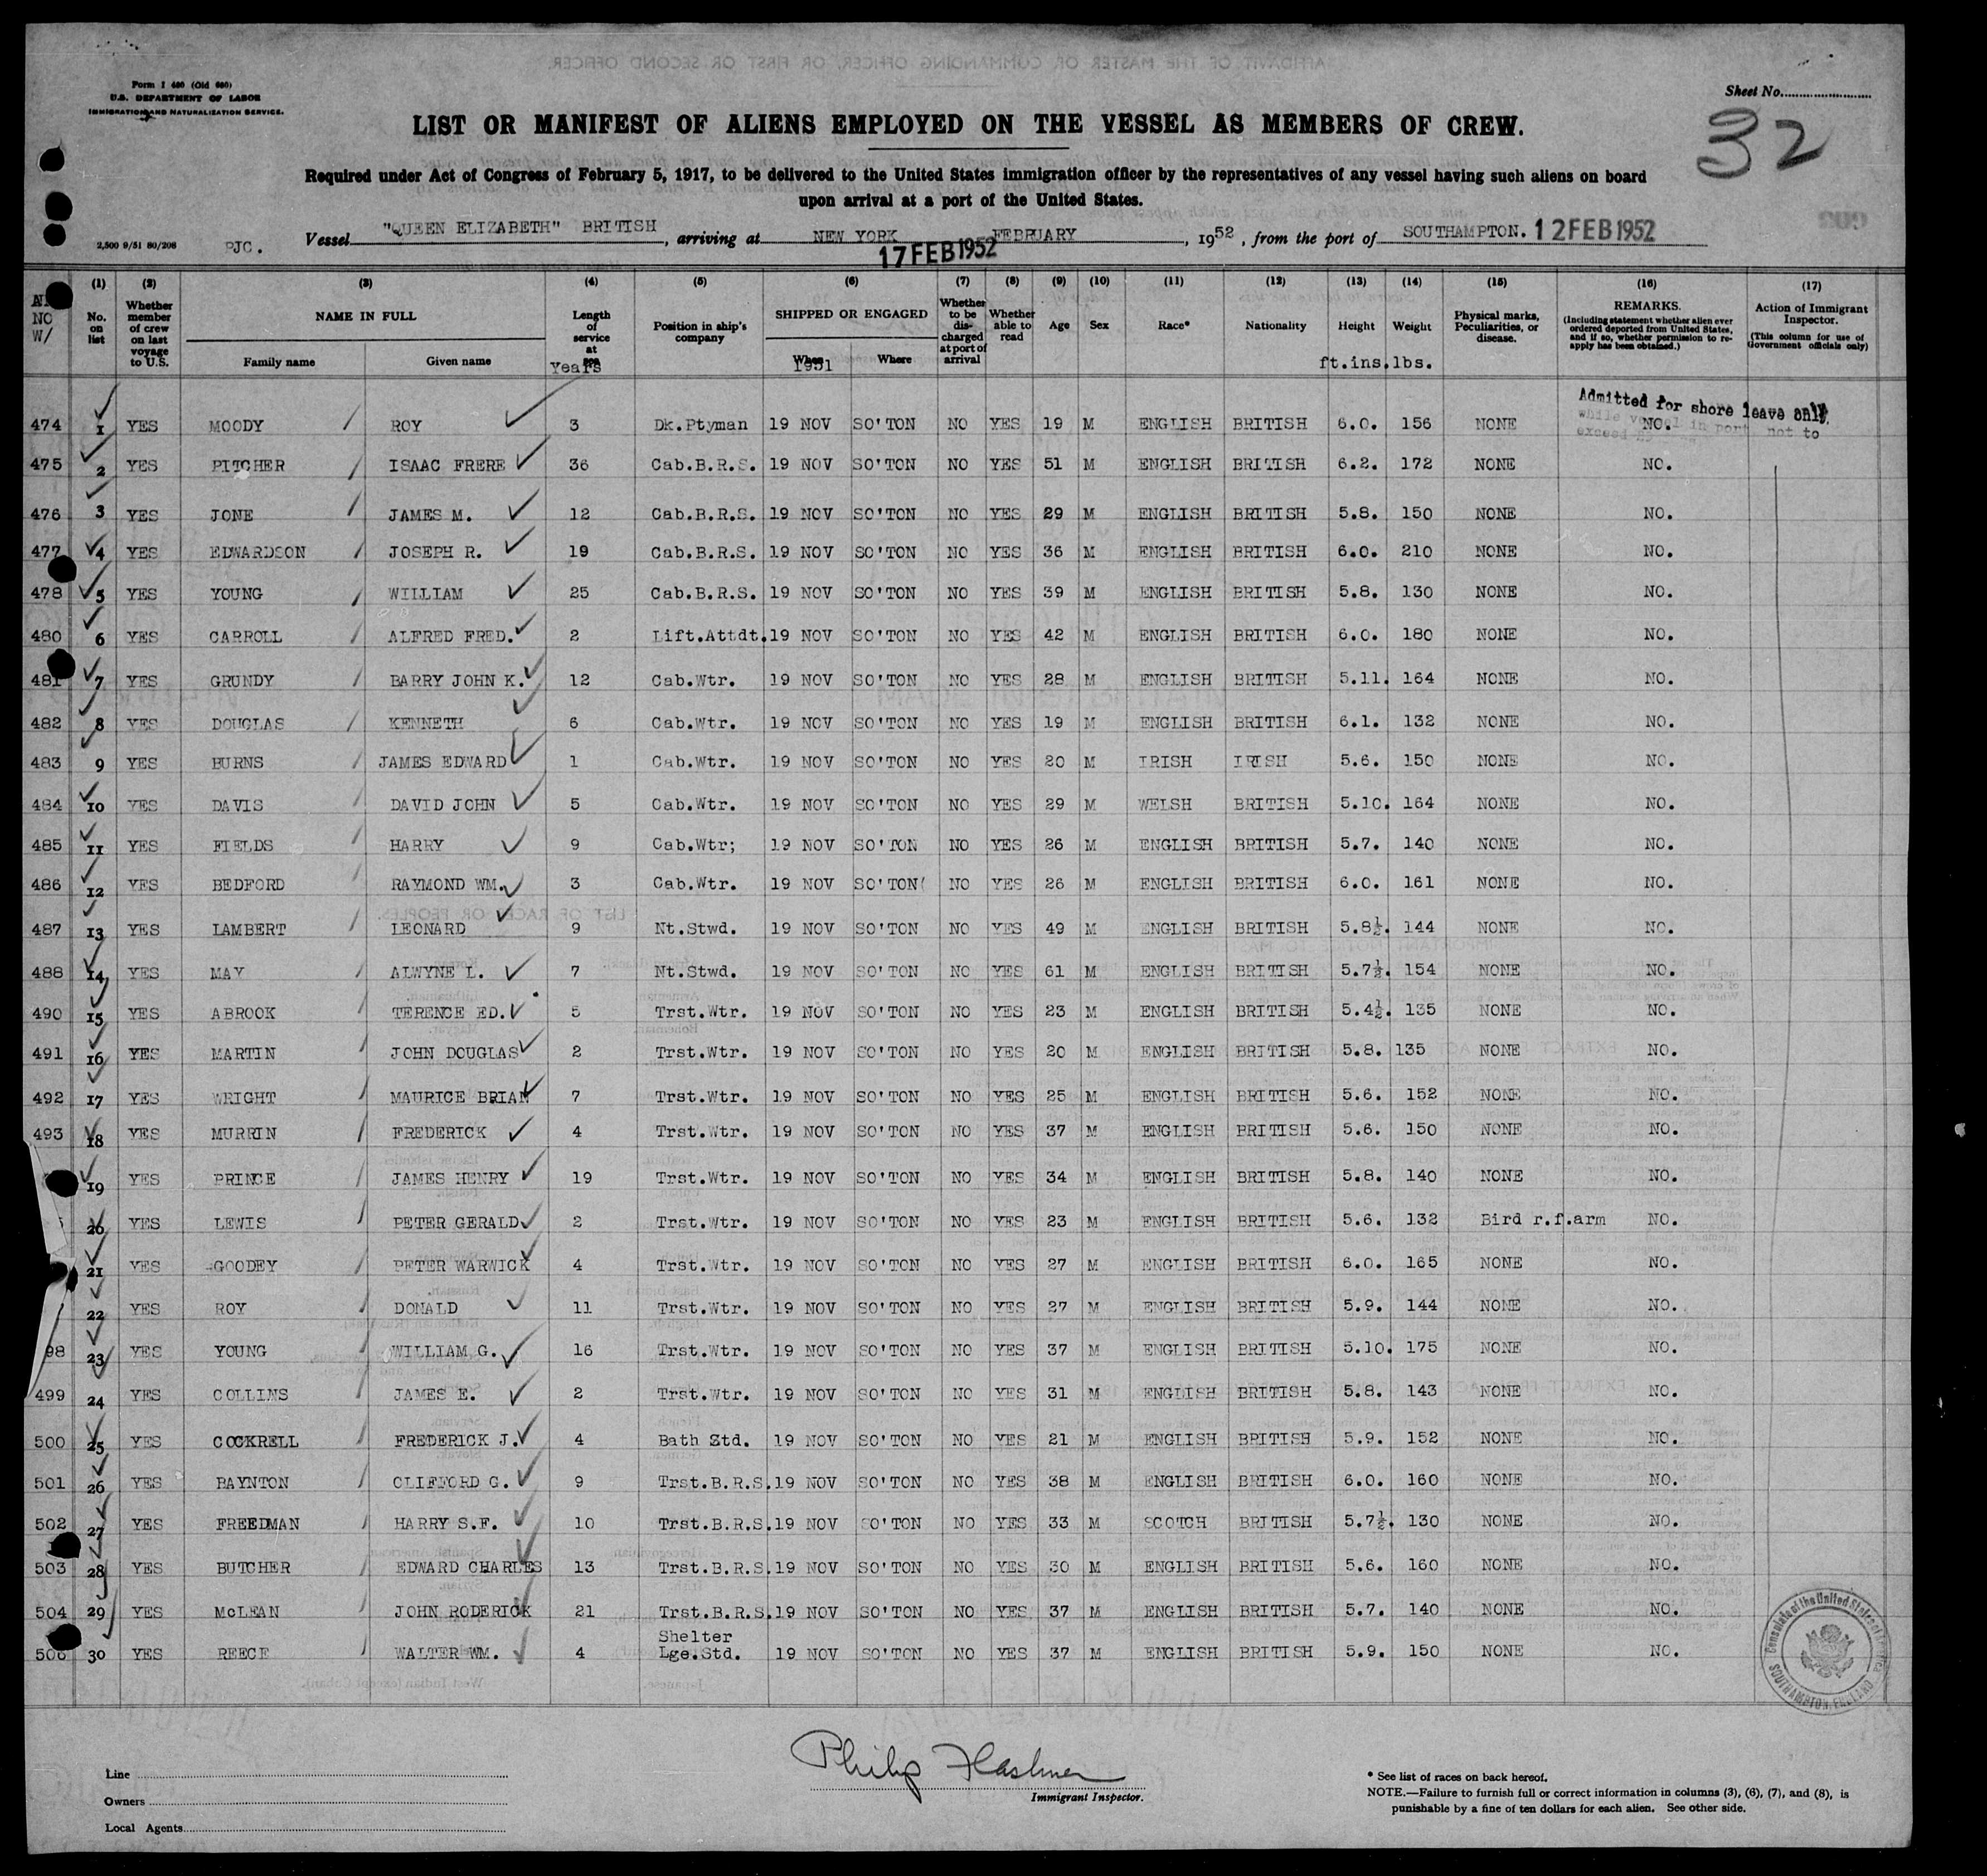 Form I 480 (Old 680)
U.S. DEPARTMENT OF LABOR
IMMIGRATION AND NATURALIZATION SERVICE.
Sheet No.
32
LIST OR MANIFEST OF ALIENS EMPLOYED ON THE VESSEL AS MEMBERS OF CREW.
Required under Act of Congress of February 5, 1917, to be delivered to the United States immigration officer by the representatives of any vessel having such aliens on board
upon arrival at a port of the United States.
2,500 9/51 80/208 PJC. Vessel "QUEEN ELIZABETH" BRITISH, arriving at NEW YORK FEBRUARY, 1952, from the port of SOUTHAMPTON. 12 FEB 1952
17 FEB 1952
(1) No. on list
(2) Whether member of crew on last voyage to U.S.
(3) NAME IN FULL Family name Given name
(4) Length of service at sea Years
(5) Position in ship's company
(6) SHIPPED OR ENGAGED When 1951 Where
(7) Whether to be discharged at port of arrival
(8) Whether able to read
(9) Age
(10) Sex
(11) Race*
(12) Nationality
(13) Height ft.ins.
(14) Weight lbs.
(15) Physical marks, Peculiarities, or disease.
(16) REMARKS. (Including statement whether alien ever ordered deported from United States, and if so, whether permission to reapply has been obtained.)
(17) Action of Immigrant Inspector. (This column for use of Government officials only)
NO
W/
Admitted for shore leave only
while vessel in port not to
exceed
474 1 YES MOODY ROY 3 Dk.Ptyman 19 NOV SO'TON NO YES 19 M ENGLISH BRITISH 6.0. 156 NONE NO.
475 2 YES PITCHER ISAAC FRERE 36 Cab.B.R.S. 19 NOV SO'TON NO YES 51 M ENGLISH BRITISH 6.2. 172 NONE NO.
476 3 YES JONE JAMES M. 12 Cab.B.R.S. 19 NOV SO'TON NO YES 29 M ENGLISH BRITISH 5.8. 150 NONE NO.
477 4 YES EDWARDSON JOSEPH R. 19 Cab.B.R.S. 19 NOV SO'TON NO YES 36 M ENGLISH BRITISH 6.0. 210 NONE NO.
478 5 YES YOUNG WILLIAM 25 Cab.B.R.S. 19 NOV SO'TON NO YES 39 M ENGLISH BRITISH 5.8. 130 NONE NO.
480 6 YES CARROLL ALFRED FRED. 2 Lift.Attdt. 19 NOV SO'TON NO YES 42 M ENGLISH BRITISH 6.0. 180 NONE NO.
481 7 YES GRUNDY BARRY JOHN K. 12 Cab.Wtr. 19 NOV SO'TON NO YES 28 M ENGLISH BRITISH 5.11. 164 NONE NO.
482 8 YES DOUGLAS KENNETH 6 Cab.Wtr. 19 NOV SO'TON NO YES 19 M ENGLISH BRITISH 6.1. 132 NONE NO.
483 9 YES BURNS JAMES EDWARD 1 Cab.Wtr. 19 NOV SO'TON NO YES 20 M IRISH IRISH 5.6. 150 NONE NO.
484 10 YES DAVIS DAVID JOHN 5 Cab.Wtr. 19 NOV SO'TON NO YES 29 M WELSH BRITISH 5.10. 164 NONE NO.
485 11 YES FIELDS HARRY 9 Cab.Wtr; 19 NOV SO'TON NO YES 26 M ENGLISH BRITISH 5.7. 140 NONE NO.
486 12 YES BEDFORD RAYMOND WM. 3 Cab.Wtr. 19 NOV SO'TON NO YES 26 M ENGLISH BRITISH 6.0. 161 NONE NO.
487 13 YES LAMBERT LEONARD 9 Nt.Stwd. 19 NOV SO'TON NO YES 49 M ENGLISH BRITISH 5.8½. 144 NONE NO.
488 14 YES MAY ALWYNE L. 7 Nt.Stwd. 19 NOV SO'TON NO YES 61 M ENGLISH BRITISH 5.7½. 154 NONE NO.
490 15 YES ABROOK TERENCE ED. 5 Trst.Wtr. 19 NOV SO'TON NO YES 23 M ENGLISH BRITISH 5.4½. 135 NONE NO.
491 16 YES MARTIN JOHN DOUGLAS 2 Trst.Wtr. 19 NOV SO'TON NO YES 20 M ENGLISH BRITISH 5.8. 135 NONE NO.
492 17 YES WRIGHT MAURICE BRIAN 7 Trst.Wtr. 19 NOV SO'TON NO YES 25 M ENGLISH BRITISH 5.6. 152 NONE NO.
493 18 YES MURRIN FREDERICK 4 Trst.Wtr. 19 NOV SO'TON NO YES 37 M ENGLISH BRITISH 5.6. 150 NONE NO.
19 YES PRINCE JAMES HENRY 19 Trst.Wtr. 19 NOV SO'TON NO YES 34 M ENGLISH BRITISH 5.8. 140 NONE NO.
20 YES LEWIS PETER GERALD 2 Trst.Wtr. 19 NOV SO'TON NO YES 23 M ENGLISH BRITISH 5.6. 132 Bird r.f.arm NO.
21 YES GOODEY PETER WARWICK 4 Trst.Wtr. 19 NOV SO'TON NO YES 27 M ENGLISH BRITISH 6.0. 165 NONE NO.
22 YES ROY DONALD 11 Trst.Wtr. 19 NOV SO'TON NO YES 27 M ENGLISH BRITISH 5.9. 144 NONE NO.
98 23 YES YOUNG WILLIAM G. 16 Trst.Wtr. 19 NOV SO'TON NO YES 37 M ENGLISH BRITISH 5.10. 175 NONE NO.
499 24 YES COLLINS JAMES E. 2 Trst.Wtr. 19 NOV SO'TON NO YES 31 M ENGLISH BRITISH 5.8. 143 NONE NO.
500 25 YES COCKRELL FREDERICK J. 4 Bath Std. 19 NOV SO'TON NO YES 21 M ENGLISH BRITISH 5.9. 152 NONE NO.
501 26 YES BAYNTON CLIFFORD G. 9 Trst.B.R.S. 19 NOV SO'TON NO YES 38 M ENGLISH BRITISH 6.0. 160 NONE NO.
502 27 YES FREEDMAN HARRY S.F. 10 Trst.B.R.S. 19 NOV SO'TON NO YES 33 M SCOTCH BRITISH 5.7½. 130 NONE NO.
503 28 YES BUTCHER EDWARD CHARLES 13 Trst.B.R.S. 19 NOV SO'TON NO YES 30 M ENGLISH BRITISH 5.6. 160 NONE NO.
504 29 YES McLEAN JOHN RODERICK 21 Trst.B.R.S. 19 NOV SO'TON NO YES 37 M ENGLISH BRITISH 5.7. 140 NONE NO.
506 30 YES REECE WALTER WM. 4 Shelter Lge.Std. 19 NOV SO'TON NO YES 37 M ENGLISH BRITISH 5.9. 150 NONE NO.
Consulate of the United States of America
SOUTHAMPTON, ENGLAND
Philip Flashner
Immigrant Inspector.
Line
Owners
Local Agents
* See list of races on back hereof.
NOTE.—Failure to furnish full or correct information in columns (3), (6), (7), and (8), is
punishable by a fine of ten dollars for each alien. See other side.